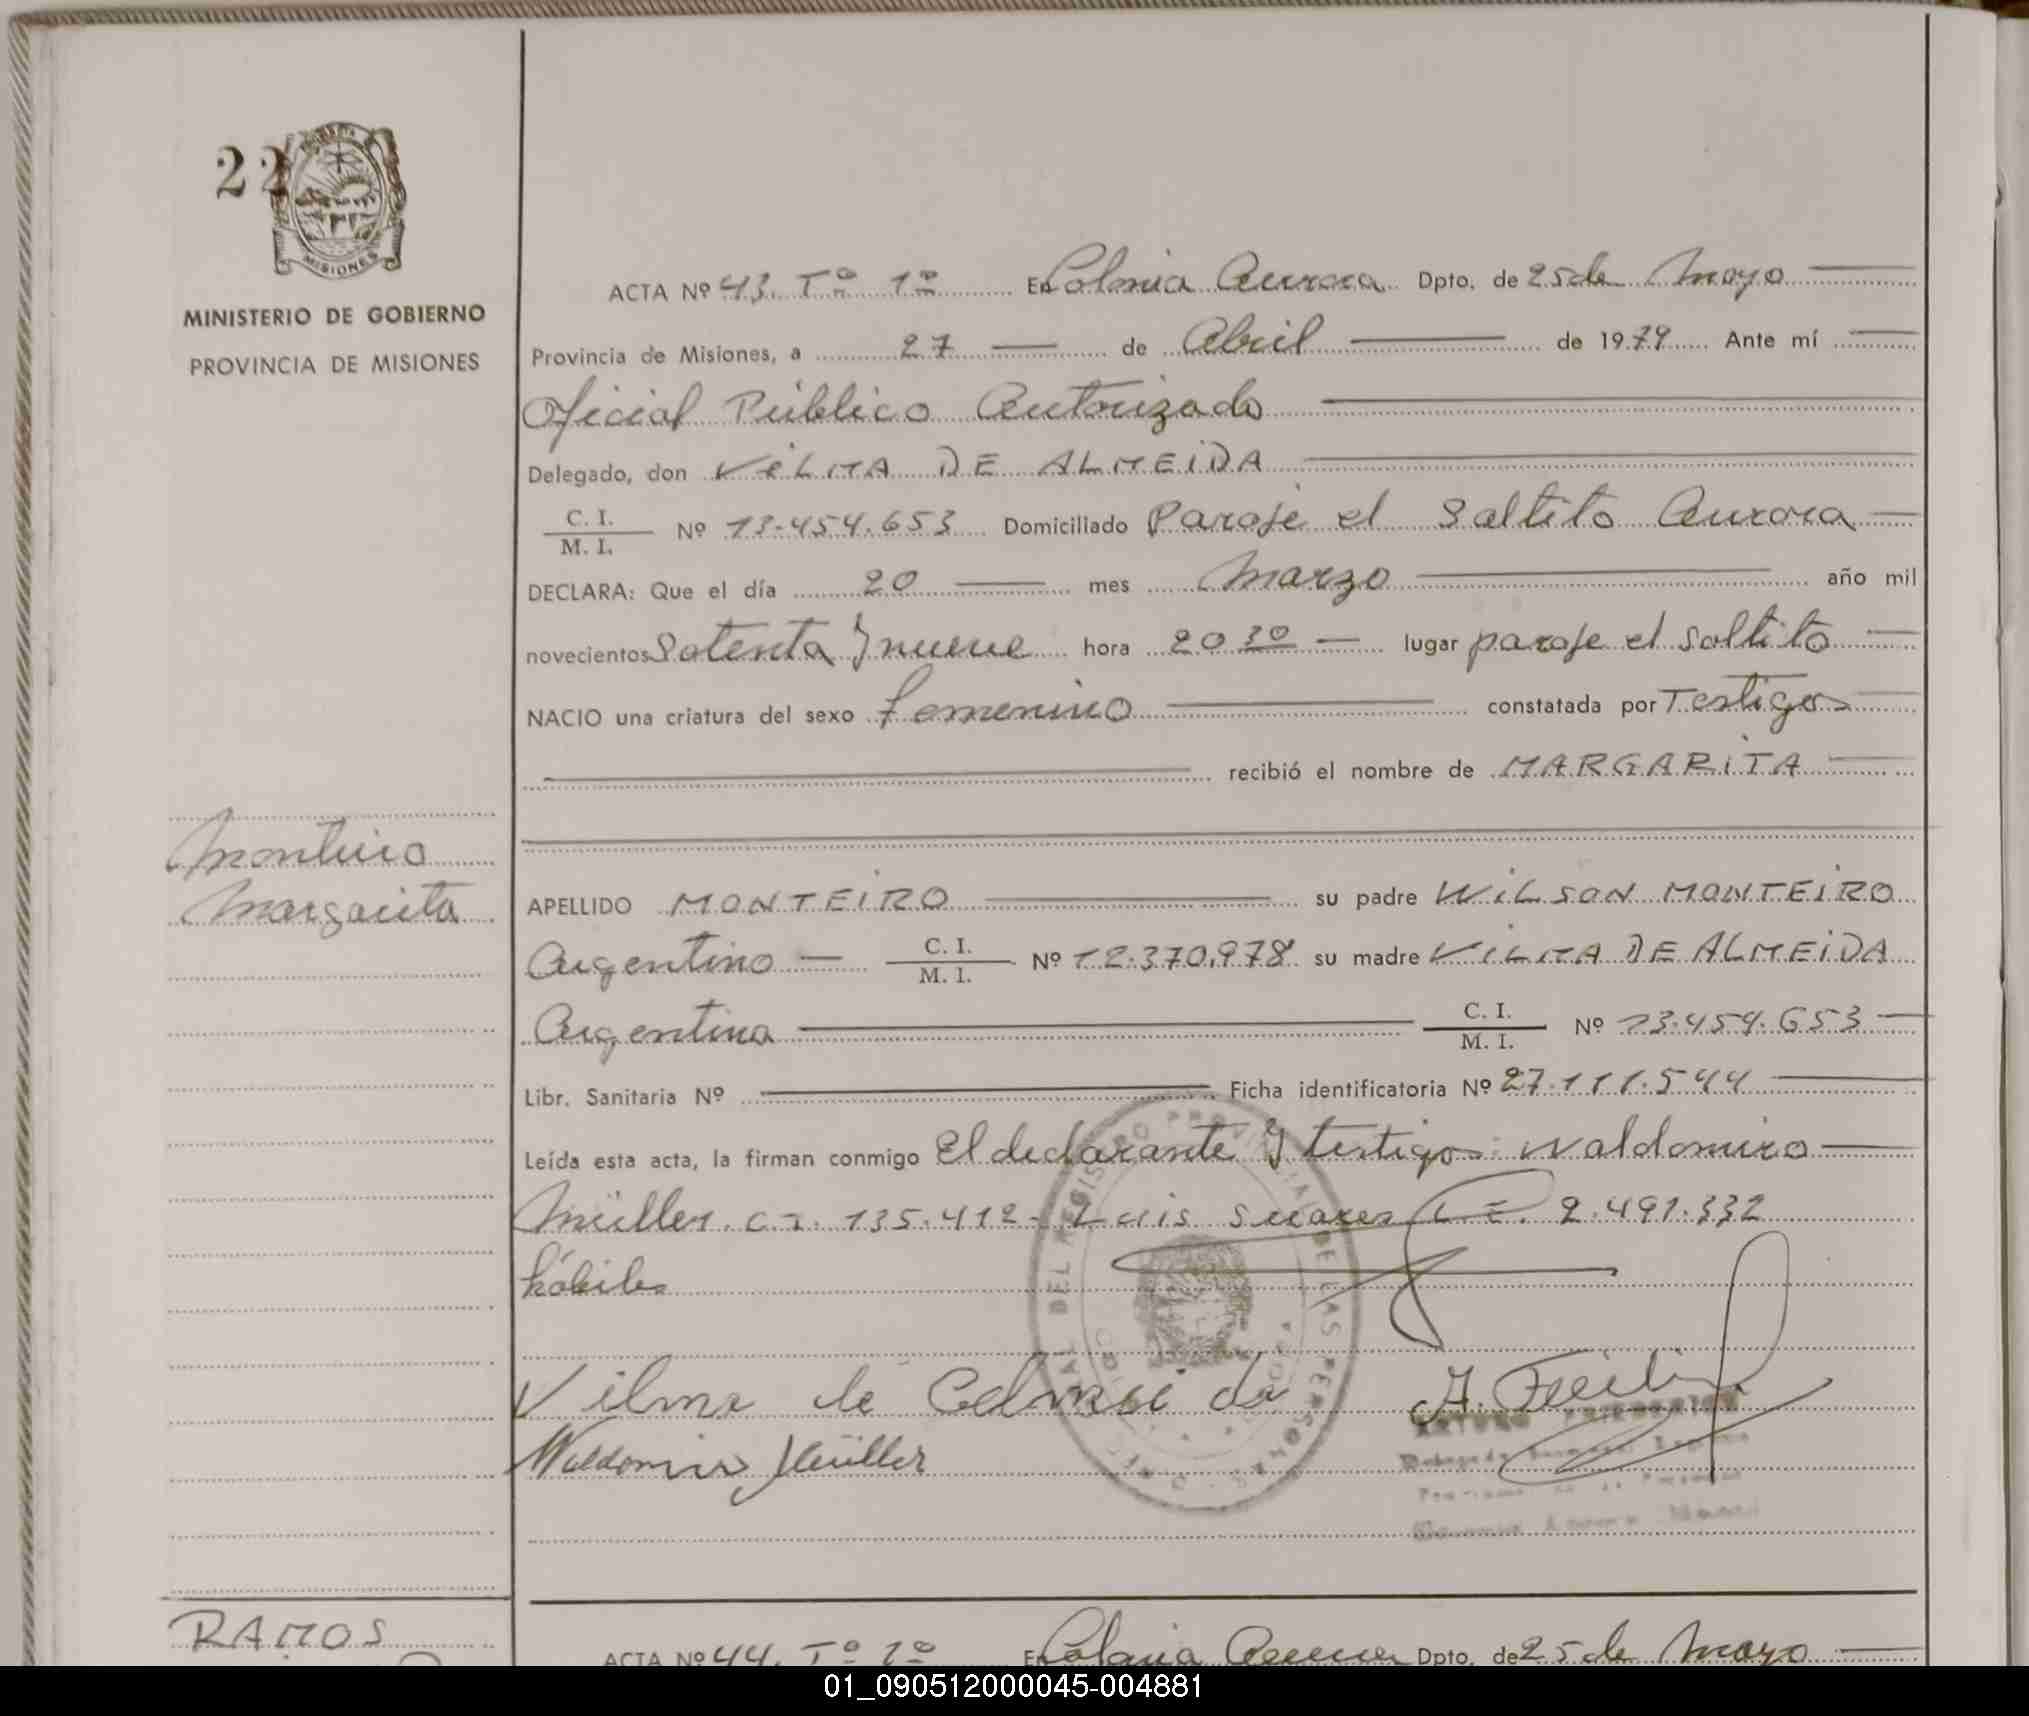 22
MISIONES
MINISTERIO DE GOBIERNO
PROVINCIA DE MISIONES
ACTA Nº 43. Tº 1º En Colonia Aurora Dpto. de 25 de Mayo
Provincia de Misiones, a 27 de Abril de 1979 Ante mí
Oficial Público Autorizado
Delegado, don VILMA DE ALMEIDA
C. I.
M. I. Nº 13.454.653 Domiciliado Paraje el Saltito Aurora
DECLARA: Que el día 20 mes Marzo año mil
novecientos Setenta y nueve hora 20 30 lugar paraje el Saltito
NACIO una criatura del sexo femenino constatada por Testigos
recibió el nombre de MARGARITA
Monteiro
Margarita
APELLIDO MONTEIRO su padre WILSON MONTEIRO
Argentino C. I.
M. I. Nº 12.370.978 su madre VILMA DE ALMEIDA
Argentina C. I.
M. I. Nº 13.454.653
Libr. Sanitaria Nº Ficha identificatoria Nº 27.111.544
Leída esta acta, la firman conmigo El declarante y testigos: Waldomiro
Müller C.I. 135.412- Luis Suares L E. 2.491.332
hábiles
Vilma de Almeida
Waldomiro Müller
ARTURO
RAMOS
ACTA Nº 44. Tº 1º En Colonia Aurora Dpto. de 25 de Mayo
01_090512000045-004881